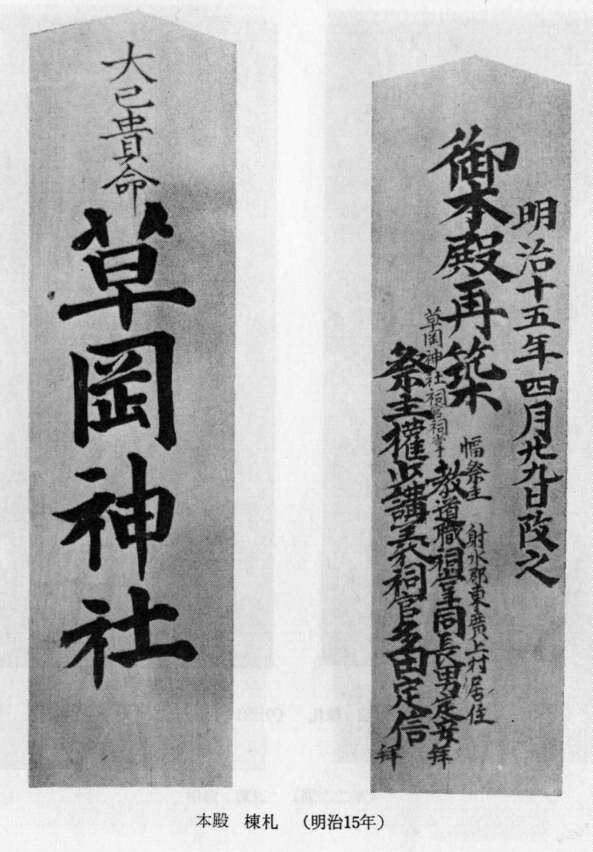 明治十五年四月廿九日改之
御本殿再築
幅祭主 射水郡東廣上村居住
草岡神社祠官祠掌
教道職 同長男定安 拝
祭主權少講義祠官多田定信 拝
大己貴命
草岡神社
本殿 棟札 (明治15年)